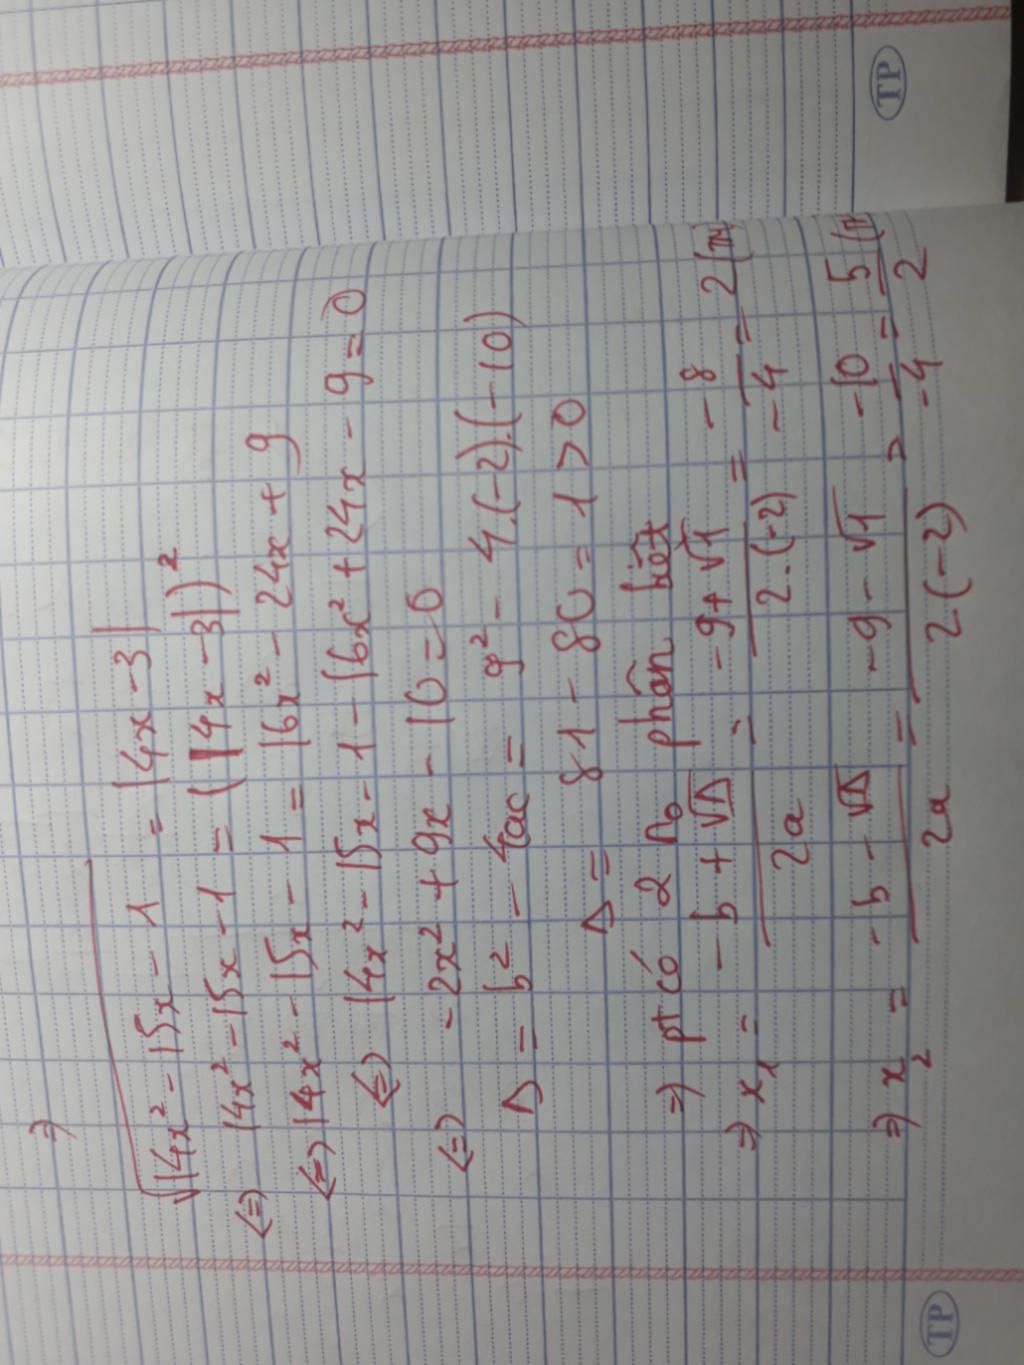 ⇒
√14x² - 15x - 1 = |4x - 3|
⇔ 14x² - 15x - 1 = (|4x - 3|)²
⇔ 14x² - 15x - 1 = 16x² - 24x + 9
⇔ 14x² - 15x - 1 - 16x² + 24x - 9 = 0
⇔ -2x² + 9x - 10 = 0
Δ = b² - 4ac = 9² - 4.(-2).(-10)
Δ = 81 - 80 = 1 > 0
⇒ pt có 2 no phân biệt
⇒ x₁ = -b + √Δ / 2a = -9 + √1 / 2.(-2) = -8 / -4 = 2
⇒ x₂ = -b - √Δ / 2a = -9 - √1 / 2.(-2) = -10 / -4 = 5 / 2
TP
TP